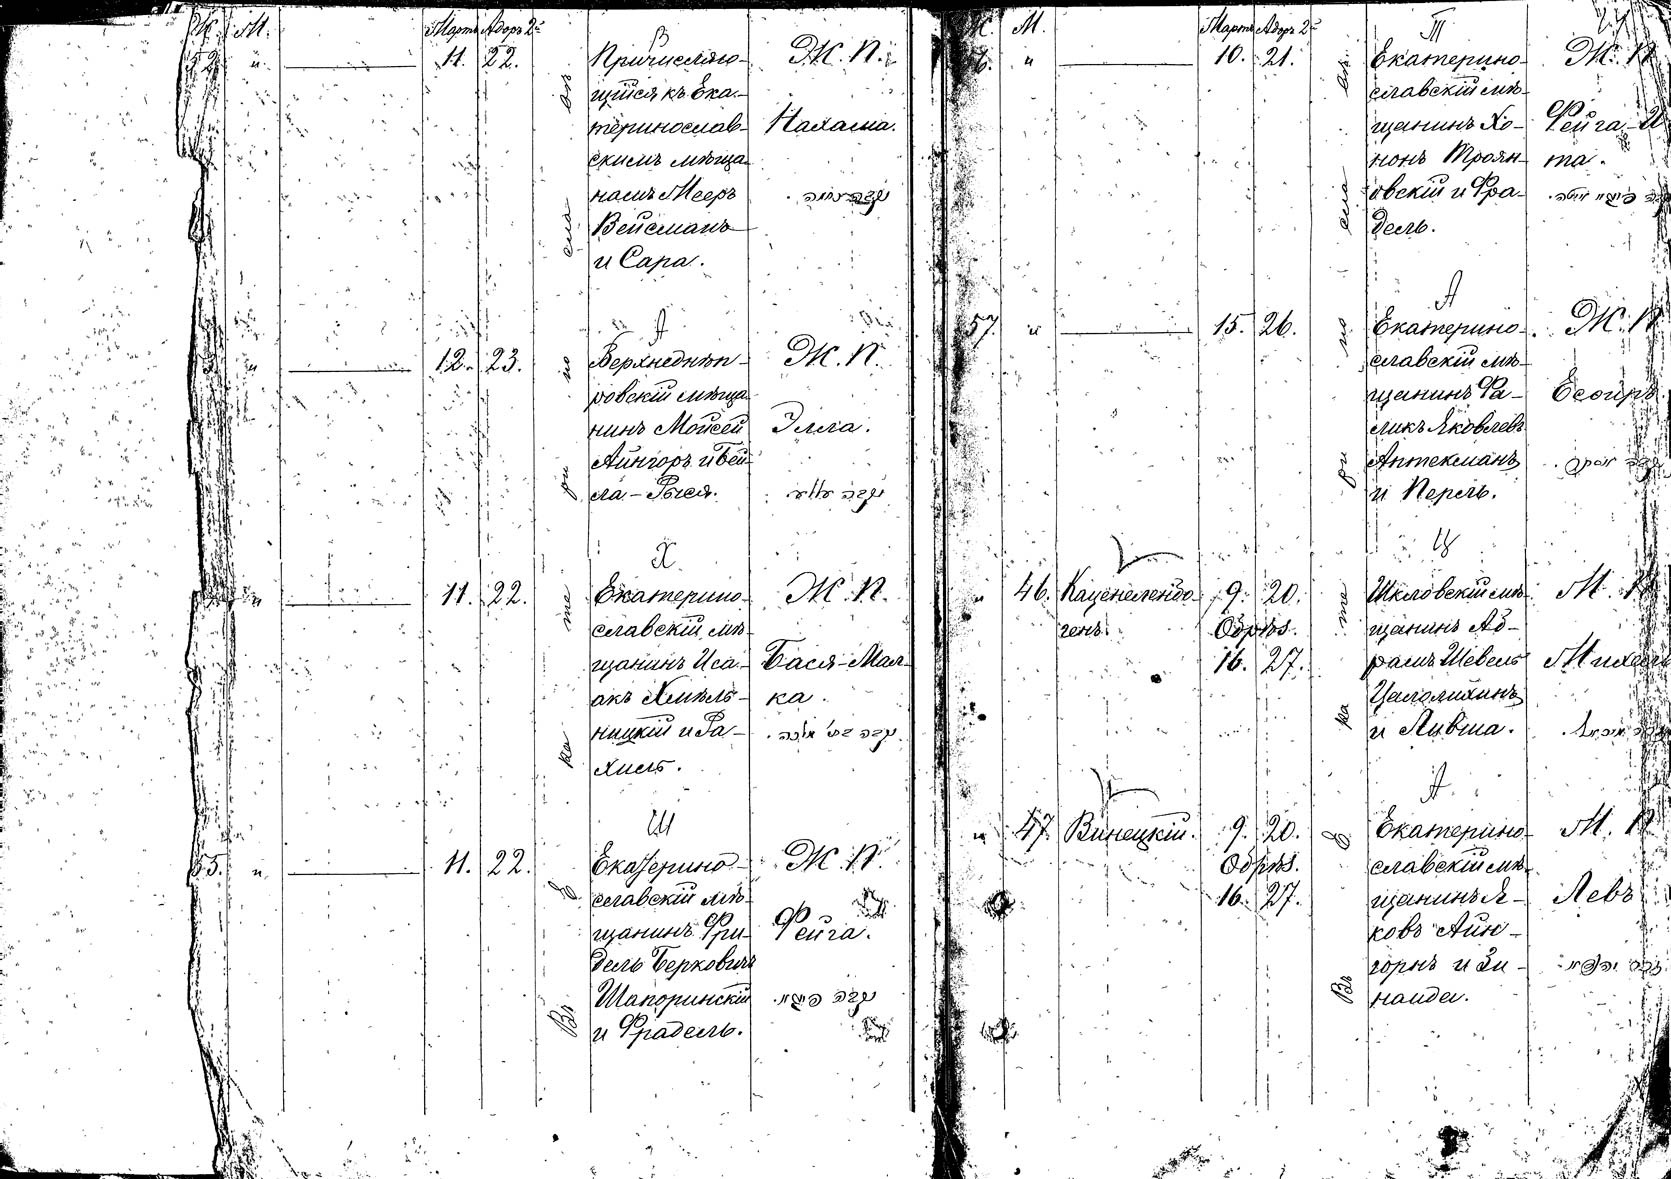 Ж. М. Мартъ Адоръ 2й
В
52 и 11. 22. Причисляю-
щійся къ Ека-
теринослав-
скимъ мѣща-
намъ Мееръ
Вейсманъ
и Сара.
Ж. П.
Нахама.
А
и 12. 23. Верхнеднѣп-
ровскій мѣща-
нинъ Мойсей
Айнгоръ и Бей-
ла-Рыся.
Ж. П.
Элла.
Х
и 11. 22. Екатерино-
славскій мѣ-
щанинъ Иса-
акъ Хмѣль-
ницкій и Ра-
хиль.
Ж. П.
Бася-Мал-
ка.
Ш
55. и 11. 22. Екатерино-
славскій мѣ-
щанинъ Фри-
дель Берковичъ
Шапоринскій
и Фрадель.
Ж. П.
Фейга.
Въ Е ка те ри но сла вѣ
М. Мартъ Адоръ 2й
Т
и 10. 21. Екатерино-
славскій мѣ-
щанинъ Хо-
нонъ Троян-
овскій и Фра-
дель.
Ж. П
Фейга-И
та.
А
57. и 15. 26. Екатерино-
славскій мѣ-
щанинъ Фа-
ликъ Яковлевъ
Аптекманъ
и Перль.
Ж. П
Есѳирь.
Ц
и 46. Каценеленбо-
генъ. 9. 20.
Обрѣз.
16. 27.
Шкловскій мѣ-
щанинъ Аб-
рамъ Шевель
Цаломихинъ
и Ливша.
М. П
Михель
А
и 47. Винецкій. 9. 20.
Обрѣз.
16. 27.
Екатерино-
славскій мѣ-
щанинъ Я-
ковъ Айн-
горнъ и Зи-
наида.
М. П
Левъ
Въ Е ка те ри но сла вѣ